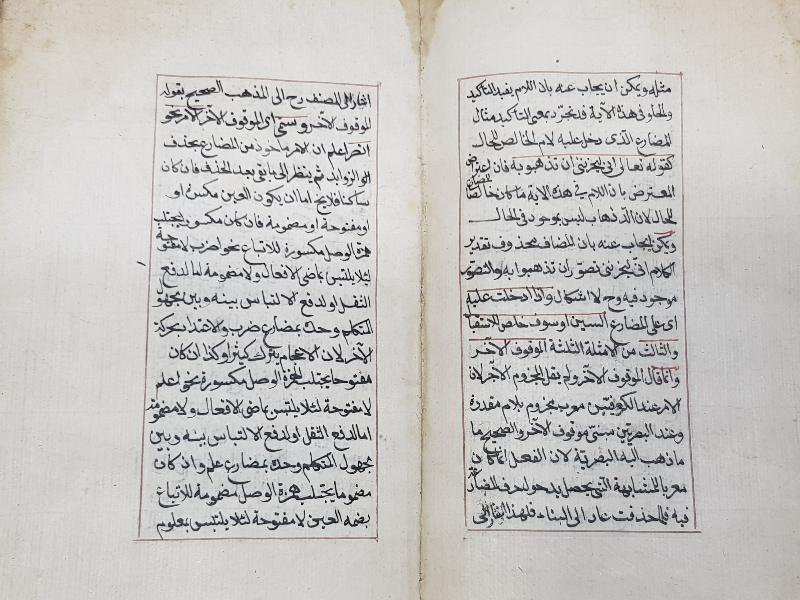 مثله ويمكن ان يجاب عنه بان اللام يفيد التاكيد
والحال وفي هذه الآية قد تجرد بمعنى التاكيد مثال
المضارع الذى دخل عليه لام الخالص للحال
كقوله تعالى انى ليحزننى ان تذهبوا به فان اعترض
المعترض بان اللام فى هذه الاية ما كان خالصا
للحال لان الذهاب ليس بموجود فى الحال
ويمكن ان يجاب عنه بان المضاف محذوف تقدير
الكلام انى ليحزننى تصور ان تذهبوا به والتصور
موجود فيه وح لا اشكال واذا دخلت عليه
اى على المضارع السين او سوف خلص للاستقبال
والثالث من الامثلة الثلثة الموقوف الآخر
وانما قال الموقوف الآخر ولم يقل المجزوم الآخر لان
الامر عند الكوفيين معرب مجزوم بلام مقدرة
وعند البصريين مبنى موقوف الآخر والصحيح ما
ما ذهب اليه البصرية لان الفعل انما كان
معربا للمشابهة التى يحصل بدخول حرف المضارعة
فيه فلما حذفت عاد الى البناء فلهذا
اشار المصنف رح الى المذهب الصحيح بقوله
الموقوف الآخر وسمى اى الموقوف الآخر الامر نحو
انصر اعلم ان الامر ماخوذ من المضارع بحذف
الزوايد ثم ينظر الى ما بقى بعد الحذف فان كان
ساكنا فلا يخ اما ان يكون العين مكسورا او
او مفتوحة او مضمومة فان كان مكسورا يجتلب
همزة الوصل مكسورة للاتباع نحو اضرب لا مفتوحة
لئلا يلتبس بماضى الافعال ولا مضمومة اما لدفع
الثقل او لدفع الالتباس بينه وبين مجهول
المتكلم وحده بمضارع ضرب ولا اعتداد بحركة
الآخر لان الاعجام يترك كثيرا وكذا ان كان
مفتوحا يجتلب همزة الوصل مكسورة نحو اعلم
لا مفتوحة لئلا يلتبس بماضى الافعال ولا مضمومة
اما لدفع الثقل او لدفع الالتباس بينه وبين
مجهول المتكلم وحده بمضارع علم وان كان
مضموما يجتلب همزة الوصل مضمومة للاتباع
بضمه العين لا مفتوحة لئلا يلتبس بمعلوم